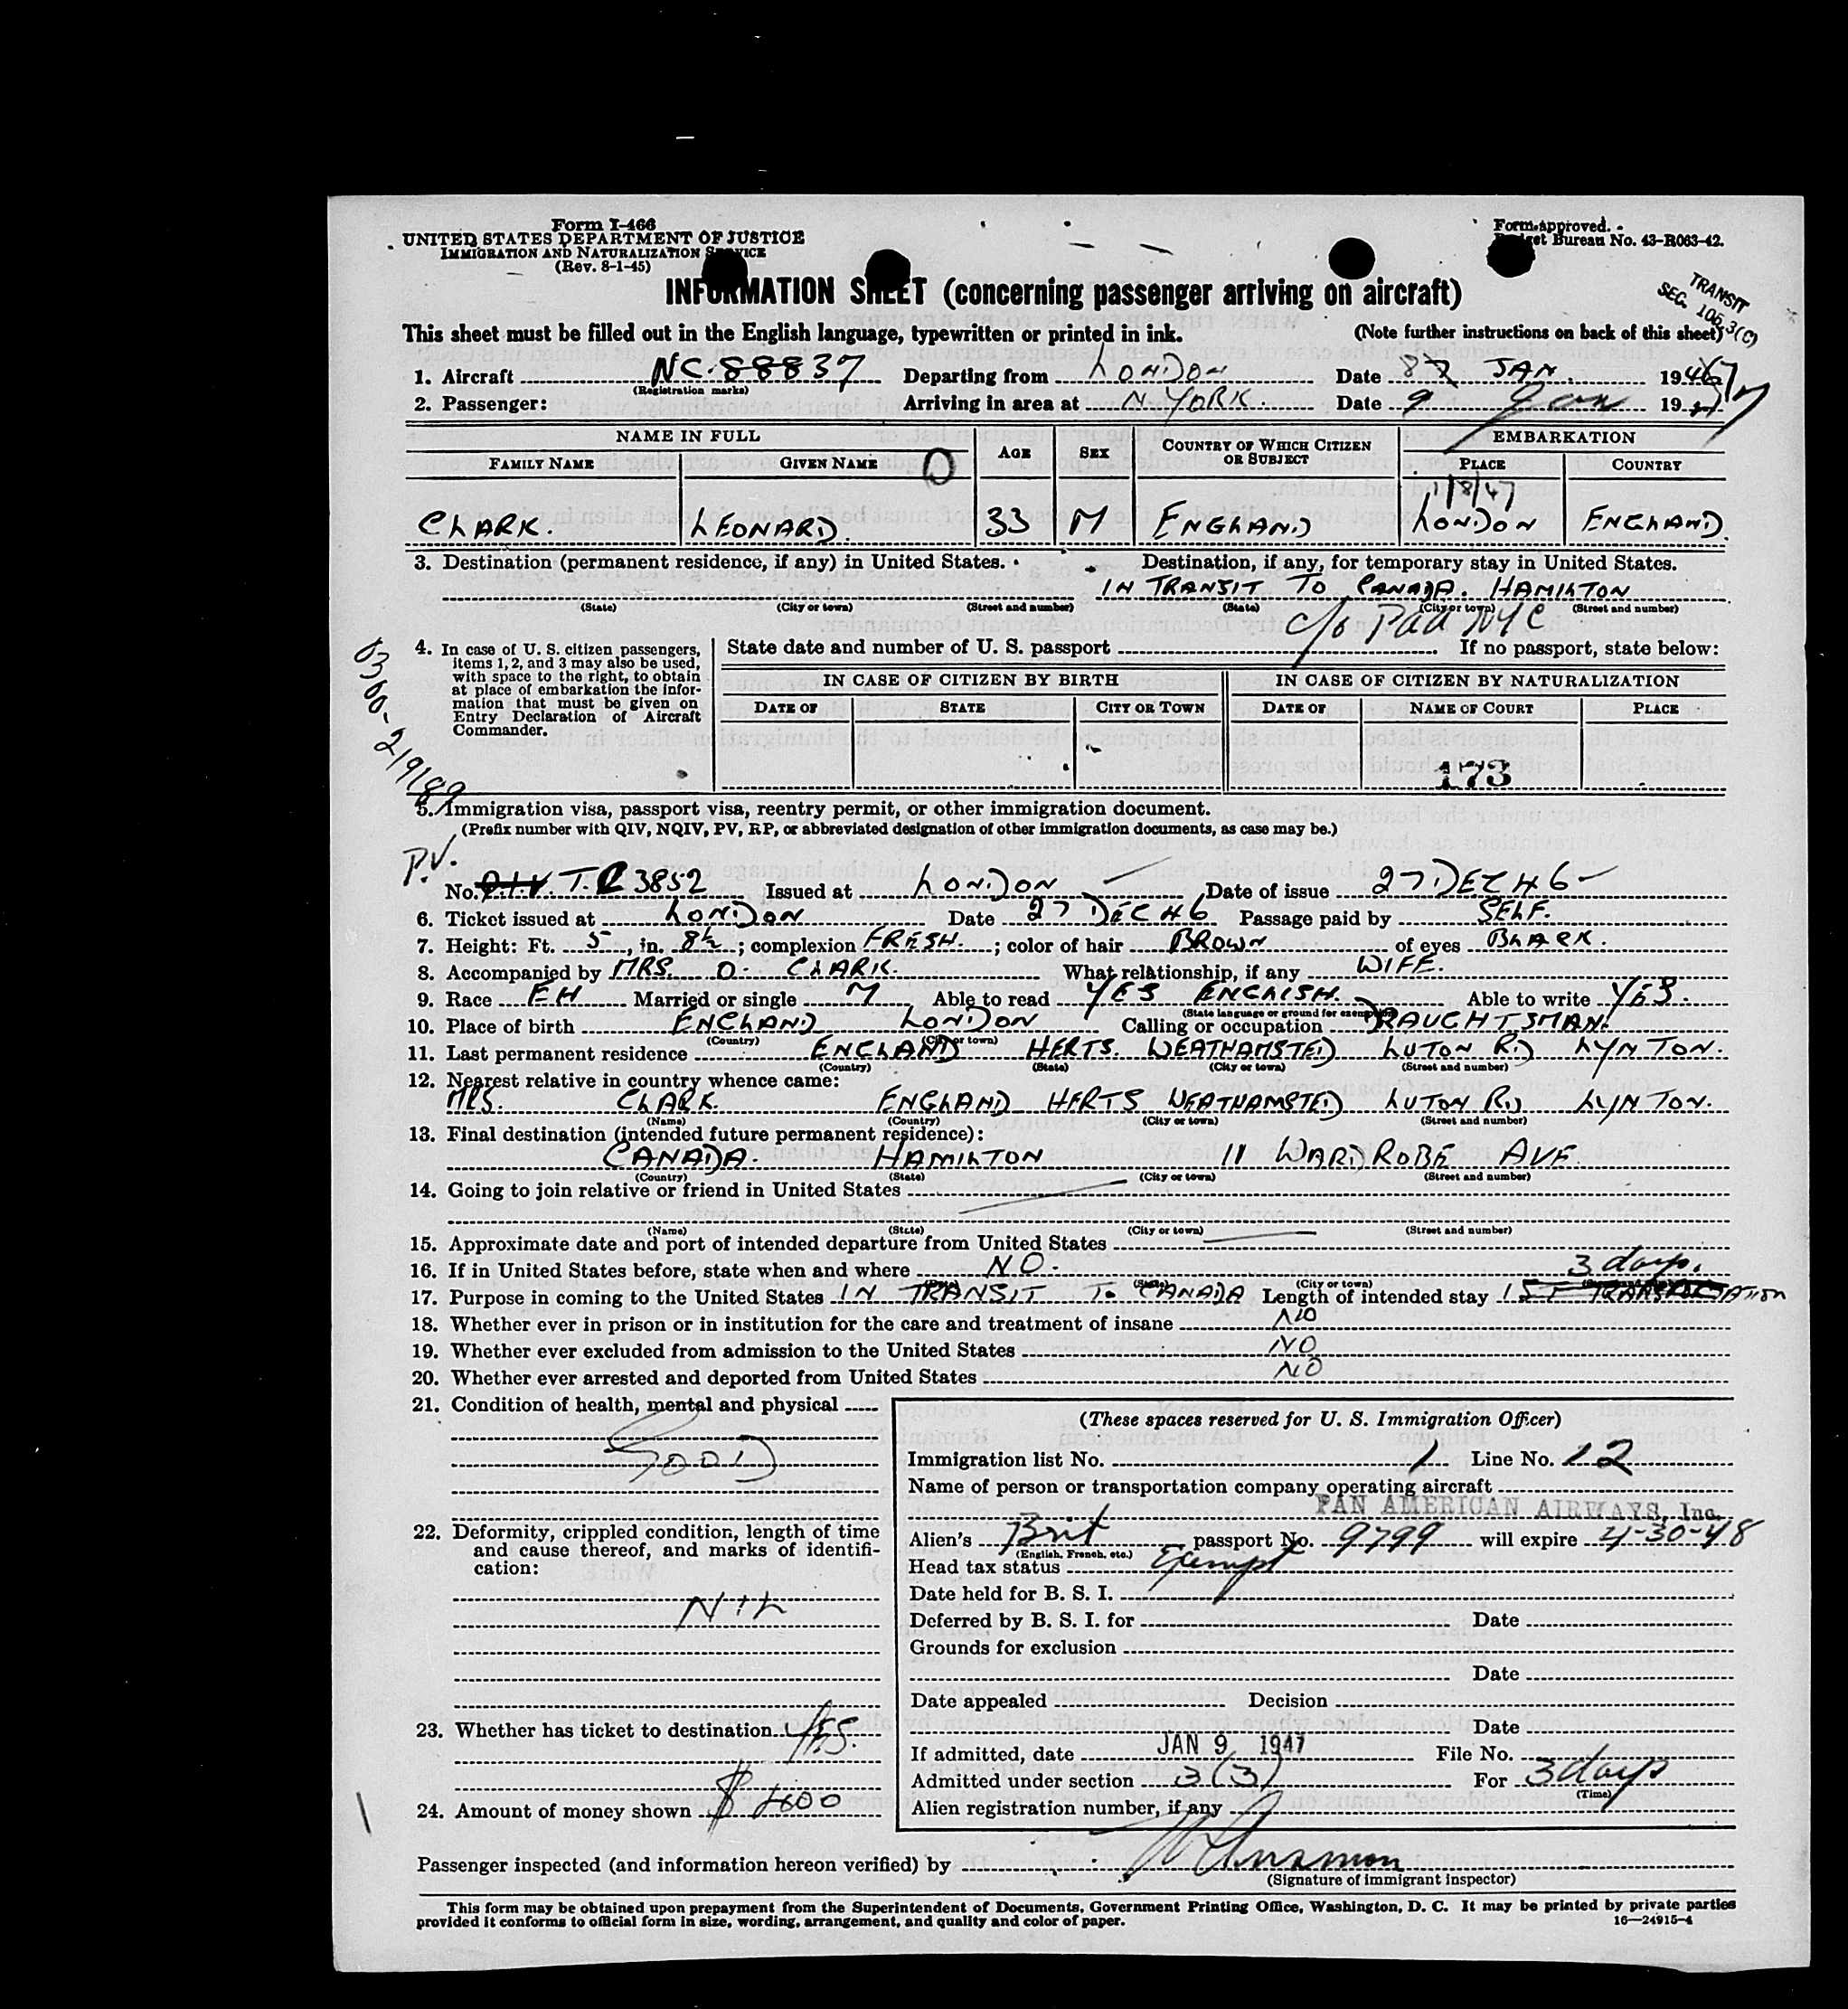 Form I-466
UNITED STATES DEPARTMENT OF JUSTICE
IMMIGRATION AND NATURALIZATION SERVICE
(Rev. 8-1-45)
Form approved.
Budget Bureau No. 43-R063-42.
INFORMATION SHEET (concerning passenger arriving on aircraft)
TRANSIT
SEC. 105.3(c)
This sheet must be filled out in the English language, typewritten or printed in ink. (Note further instructions on back of this sheet)
1. Aircraft NC.88837 Departing from LONDON Date 8 JAN. 1947
(Registration marks)
2. Passenger: Arriving in area at N. YORK. Date 9 Jan 1947
NAME IN FULL AGE SEX COUNTRY OF WHICH CITIZEN OR SUBJECT EMBARKATION
FAMILY NAME GIVEN NAME PLACE COUNTRY
1/8/47
CLARK. LEONARD. 33 M ENGLAND LONDON ENGLAND
3. Destination (permanent residence, if any) in United States. Destination, if any, for temporary stay in United States.
IN TRANSIT TO CANADA. HAMILTON
(State) (City or town) (Street and number) (State) (City or town) (Street and number)
c/o PAA NYC
4. In case of U. S. citizen passengers, items 1, 2, and 3 may also be used, with space to the right, to obtain at place of embarkation the information that must be given on Entry Declaration of Aircraft Commander.
State date and number of U. S. passport If no passport, state below:
IN CASE OF CITIZEN BY BIRTH IN CASE OF CITIZEN BY NATURALIZATION
DATE OF STATE CITY OR TOWN DATE OF NAME OF COURT PLACE
173
5. Immigration visa, passport visa, reentry permit, or other immigration document.
(Prefix number with QIV, NQIV, PV, RP, or abbreviated designation of other immigration documents, as case may be.)
P.V.
No. T.C 3852 Issued at LONDON Date of issue 27 DEC 46
6. Ticket issued at LONDON Date 27 DEC 46 Passage paid by SELF.
7. Height: Ft. 5, in. 8½; complexion FRESH.; color of hair BROWN of eyes BLACK.
8. Accompanied by MRS. D. CLARK. What relationship, if any WIFE.
9. Race EH Married or single M Able to read YES ENGLISH. Able to write YES.
(State language or ground for exemption)
10. Place of birth ENGLAND LONDON Calling or occupation DRAUGHTSMAN.
(Country) (City or town)
11. Last permanent residence ENGLAND HERTS. WEATHAMSTED LUTON RD LYNTON.
(Country) (State) (City or town) (Street and number)
12. Nearest relative in country whence came:
MRS. CLARK. ENGLAND HERTS WEATHAMSTED LUTON RD LYNTON.
(Name) (Country) (City or town) (Street and number)
13. Final destination (intended future permanent residence):
CANADA. HAMILTON 11 WARDROBE AVE.
(Country) (State) (City or town) (Street and number)
14. Going to join relative or friend in United States
(Name) (State) (City or town) (Street and number)
15. Approximate date and port of intended departure from United States
16. If in United States before, state when and where NO. 3 days.
(Date) (State) (City or town)
17. Purpose in coming to the United States IN TRANSIT TO CANADA Length of intended stay 1ST TRANSPORTATION
18. Whether ever in prison or in institution for the care and treatment of insane NO
19. Whether ever excluded from admission to the United States NO
20. Whether ever arrested and deported from United States NO
21. Condition of health, mental and physical
GOOD
22. Deformity, crippled condition, length of time and cause thereof, and marks of identification:
NIL
23. Whether has ticket to destination YES.
24. Amount of money shown
(These spaces reserved for U. S. Immigration Officer)
Immigration list No. 1 Line No. 12
Name of person or transportation company operating aircraft
PAN AMERICAN AIRWAYS, Inc.
Alien's Brit passport No. 9799 will expire 4-30-48
(English, French, etc.)
Head tax status Exempt
Date held for B. S. I.
Deferred by B. S. I. for Date
Grounds for exclusion
Date
Date appealed Decision
Date
If admitted, date JAN 9 1947 File No.
Admitted under section 3(3) For 3 days
(Time)
Alien registration number, if any
Passenger inspected (and information hereon verified) by
(Signature of immigrant inspector)
This form may be obtained upon prepayment from the Superintendent of Documents, Government Printing Office, Washington, D. C. It may be printed by private parties
provided it conforms to official form in size, wording, arrangement, and quality and color of paper.
16—24915-4